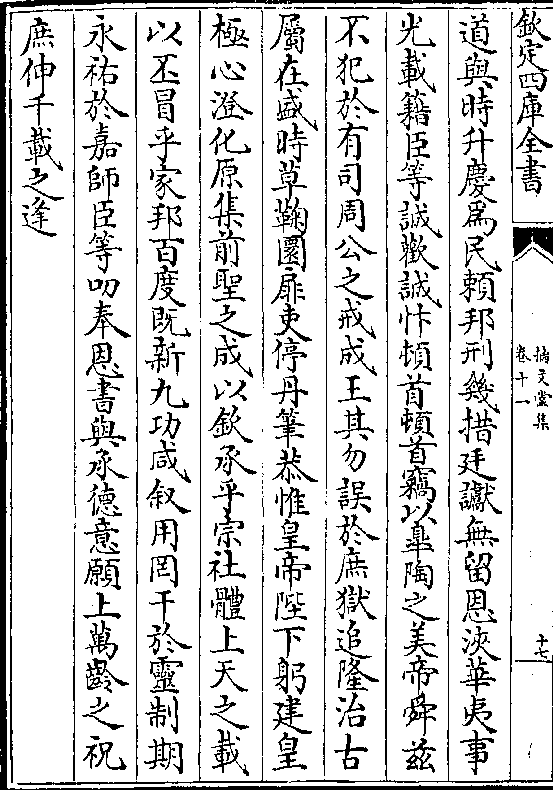 欽定四庫全書
摛文堂集
卷十一
十七
道與時升慶爲民頼邦刑幾措廷讞無留恩浹華夷事
光載籍臣等誠歡誠忭頓首頓首竊以臯陶之美帝舜兹
不犯於有司周公之戒成王其勿誤於庶獄追隆治古
屬在盛時草鞠圜扉吏停丹筆恭惟皇帝陛下躬建皇
極心澄化原集前聖之成以欽承乎宗社體上天之載
以丕冒乎家邦百度既新九功咸叙用罔干於靈制期
永祐於嘉師臣等叨奉恩書與承徳意願上萬齡之祝
庶伸千載之逢